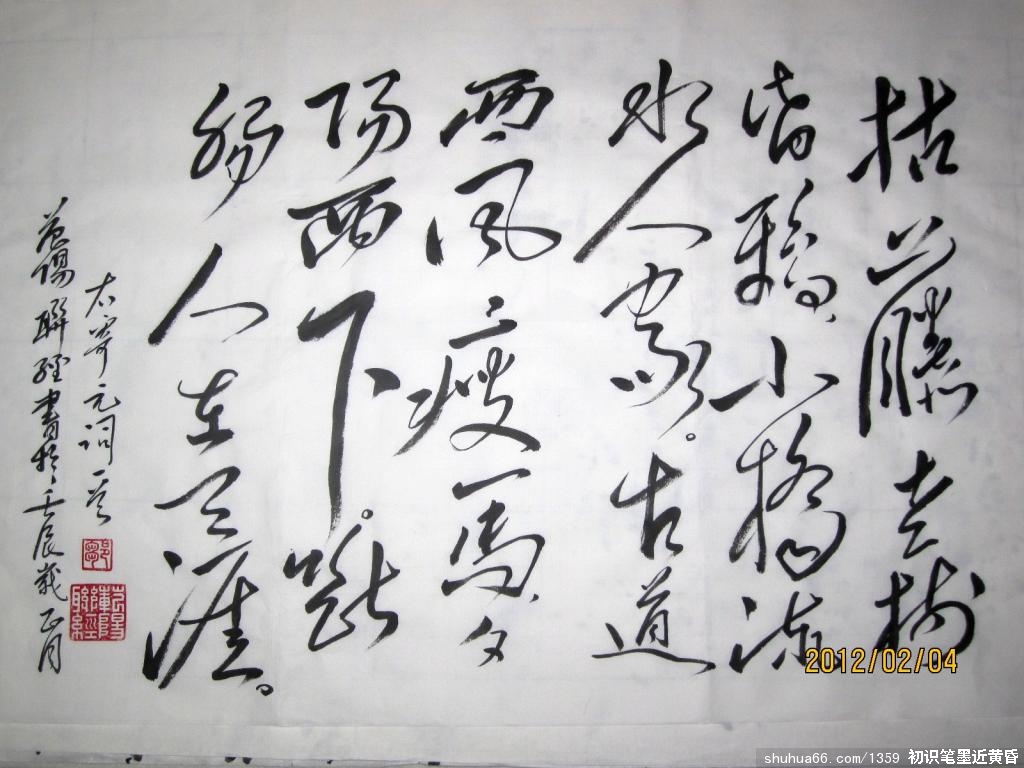 枯藤老树
昏鴉，小橋流
水人家。古道
西风瘦馬，夕
陽西下。断
腸人在天涯。
右寄元词一首
陽聯經書於壬辰歲正月
2012/02/04
shuhua66.com/1359 初识笔墨近黄昏